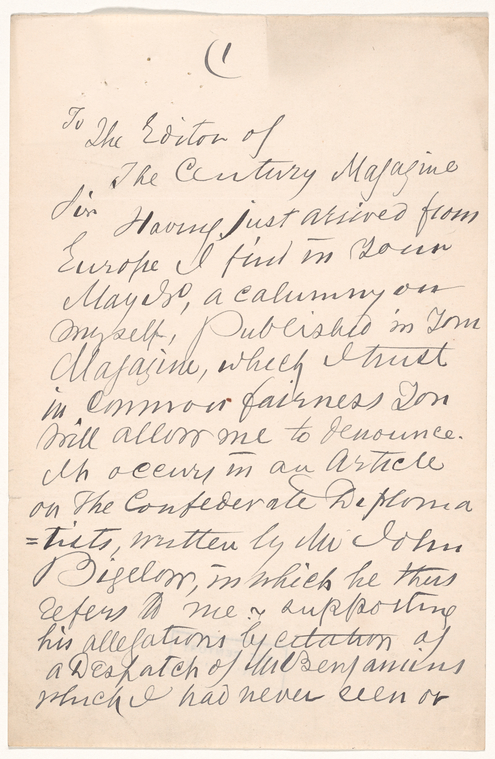 (1
To The Editor of
The Century Magazine
Sir Having just arrived from
Europe I find in your
May No, a calumny on
myself, Published in your
Magazine, which I trust
in common fairness you
will allow me to denounce.
It occurs in an Article
on The Confederate Diploma
=tists, written by Mr John
Bigelow, in which he thus
refers to me & supporting
his allegations by citation of
a Despatch of Mr Benjamins
which I had never seen or